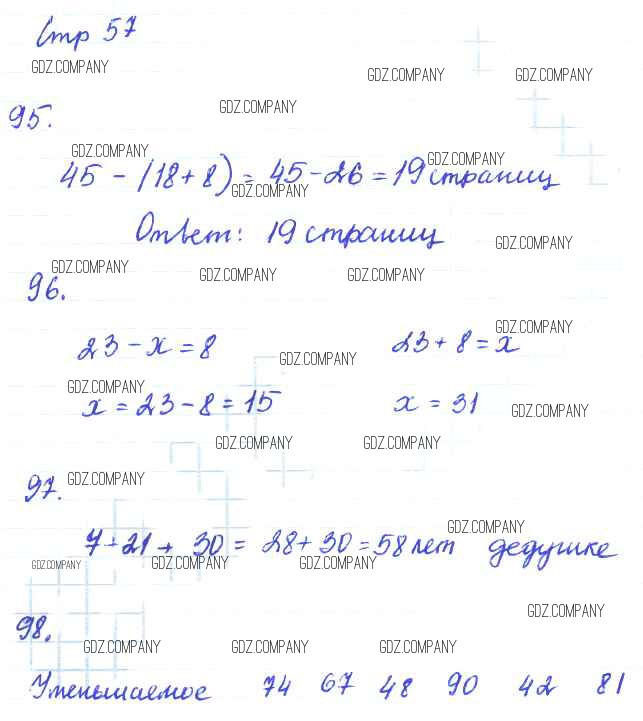 Стр 57
GDZ.COMPANY
GDZ.COMPANY GDZ.COMPANY
GDZ.COMPANY
95.
GDZ.COMPANY
GDZ.COMPANY
45 - (18 + 8) = 45 - 26 = 19 страниц
GDZ.COMPANY
Ответ: 19 страниц
GDZ.COMPANY
GDZ.COMPANY GDZ.COMPANY GDZ.COMPANY
96.
GDZ.COMPANY
23 - х = 8 23 + 8 = х
GDZ.COMPANY
GDZ.COMPANY
х = 23 - 8 = 15 х = 31
GDZ.COMPANY
GDZ.COMPANY GDZ.COMPANY
97.
GDZ.COMPANY
GDZ.COMPANY
7 + 21 + 30 = 28 + 30 = 58 лет дедушке
GDZ.COMPANY GDZ.COMPANY GDZ.COMPANY
GDZ.COMPANY
98.
GDZ.COMPANY GDZ.COMPANY GDZ.COMPANY
Уменьшаемое 74 67 48 90 42 81